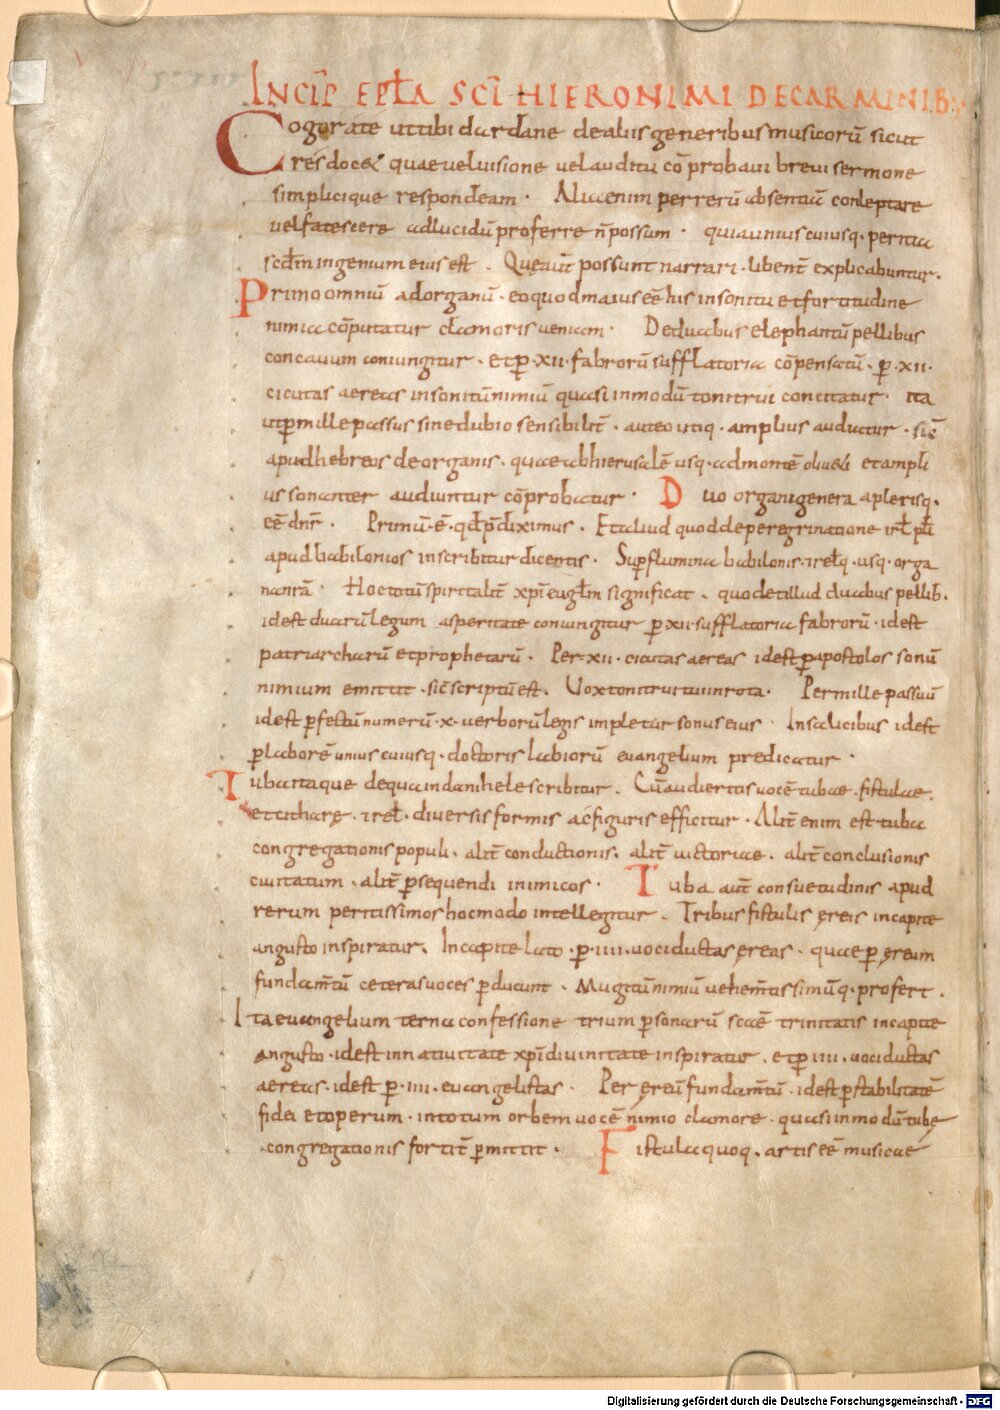 INCIP̄ EPŁA SC̄I HIERONIMI DE CARMINIB;
Cogor a te ut tibi dardane de aliis generibus musicorū sicut
res docet quae vel visione vel auditu cō probavi brevi sermone
simplicique respondeam · Alia enim per rerū absentiā conleptare
vel fatescere ad lucidū proferre n̄ possum · quia unius cuiusq· peritia
scd̄m ingenium eius est · Que aut̄ possunt narrari · libent̄ explicabuntur ·
Primo omniū ad organū · eo quod maius eē his in sonitu et fortitudine
nimia cōputatur clamoris veniam · De duabus elephantū pellibus
concavum coniungitur · et p̄ ·xii· fabrorū sufflatoria cōpensatū · p̄ ·xii·
cicutas aereas in sonitū nimiū quasi in modū tonitrui concitatur · ita
ut p̄ mille passus sine dubio sensibilit̄ · auteo utiq· amplius auditur · sic̄
apud hebreos de organis · quae ab hierusalē usq· ad montē oliveti et ampli
us sonanter audiuntur cōprobatur · Duo organi genera a plerisq·
eē dn̄r · Primū · ē · qd̄ p̄diximus · Et aliud quod de peregrinatione irl̄ pl̄i
apud babilonios inscribitur dicentis · Sup̄ flumina babilonis · et rel̄q · usq· orga
na nr̄a · Hoc totū spiritalit̄ xp̄i eugl̄m significat · quod et illud duabus pellib·
id est duarū legum asperitate coniungitur p̄ xii · sufflatoria fabrorū · id est
patriarcharū et prophetarū · Per xii · cicutas aereas id est p̄ apostolos sonū
nimium emittit · sic̄ scriptū est · Vox tonitrui tui in rota · Per mille passuū
id est p̄fectū numerū · x · verborū legis impletur sonus eius · In salicibus id est
p̄ laborē unius cuiusq· doctoris labiorū evangelium predicatur ·
Tuba itaque de qua in danihele scribitur · Cū audieritis vocē tubae · fistulae ·
et citharę · et rel̄ · diversis formis ac figuris efficitur · Alit̄ enim est tuba
congregationis populi · alit̄ conductionis · alit̄ victoriae · alit̄ conclusionis
civitatum · alit̄ p̄sequendi inimicos · Tuba aut̄ consuetudinis apud
rerum peritissimos hoc modo intellegitur · Tribus fistulis ęreis in capite
angusto inspiratur · In capite lato · p̄ · iiii · vociductas ęreas · quae p̄ ęreum
fundam̄tū ceteras voces p̄ducunt · Mugitū nimiū vehem̄tissimūq· profert ·
Ita evangelium terna confessione trium p̄sonarū scāē trinitatis in capite
angusto · id est in nativitate xp̄i divinitate inspiratur · et p̄ iiii · vociductas
aereas · id est p̄ · iiii · evangelistas · Per ęreū fundam̄tū · id est p̄ stabilitatē
fidei et operum · in totum orbem vocē nimio clamore · quasi in modū tubę
congregationis fortit̄ p̄mittit · Fistula quoq· artis eē musicae
Digitalisierung gefördert durch die Deutsche Forschungsgemeinschaft - DFG